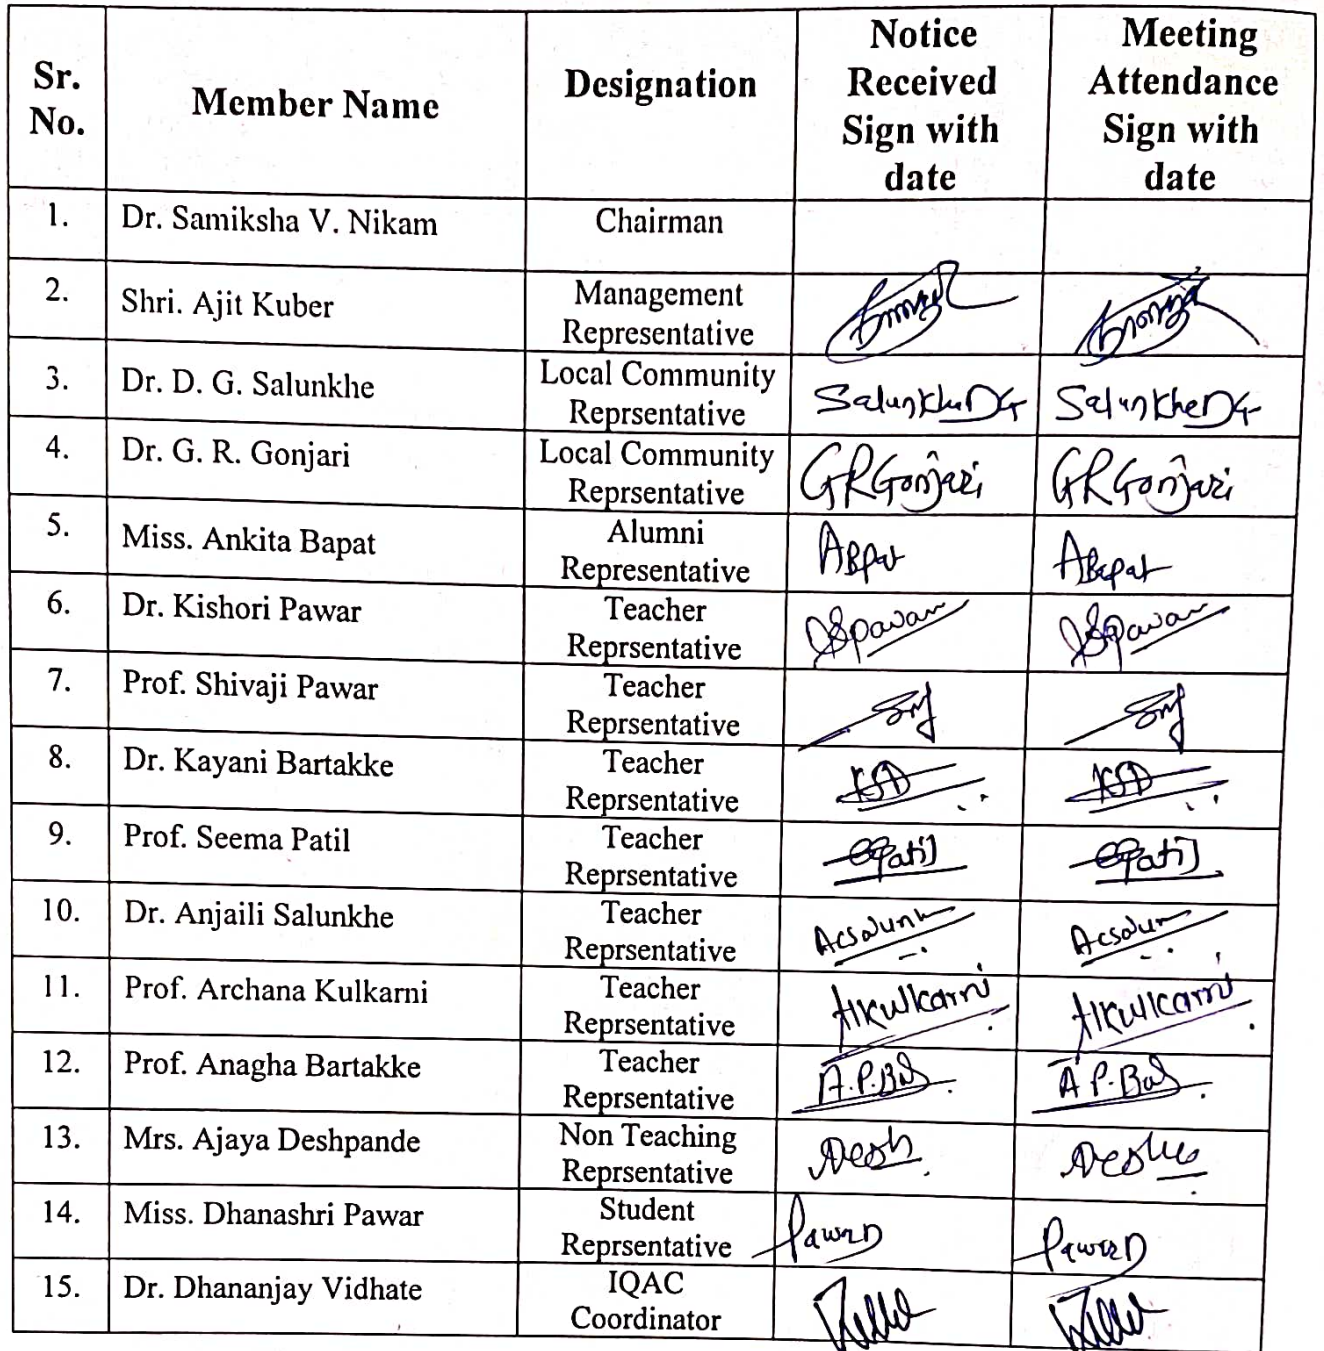 Sr. No. Member Name Designation Notice Received Sign with date Meeting Attendance Sign with date
1. Dr. Samiksha V. Nikam Chairman
2. Shri. Ajit Kuber Management Representative
3. Dr. D. G. Salunkhe Local Community Reprsentative Salunkhe DG Salunkhe DG
4. Dr. G. R. Gonjari Local Community Reprsentative GRGonjari GRGonjari
5. Miss. Ankita Bapat Alumni Representative ABapat
6. Dr. Kishori Pawar Teacher Reprsentative
7. Prof. Shivaji Pawar Teacher Reprsentative
8. Dr. Kayani Bartakke Teacher Reprsentative
9. Prof. Seema Patil Teacher Reprsentative
10. Dr. Anjaili Salunkhe Teacher Reprsentative
11. Prof. Archana Kulkarni Teacher Reprsentative AKulkarni AKulkarni
12. Prof. Anagha Bartakke Teacher Reprsentative
13. Mrs. Ajaya Deshpande Non Teaching Reprsentative
14. Miss. Dhanashri Pawar Student Reprsentative
15. Dr. Dhananjay Vidhate IQAC Coordinator